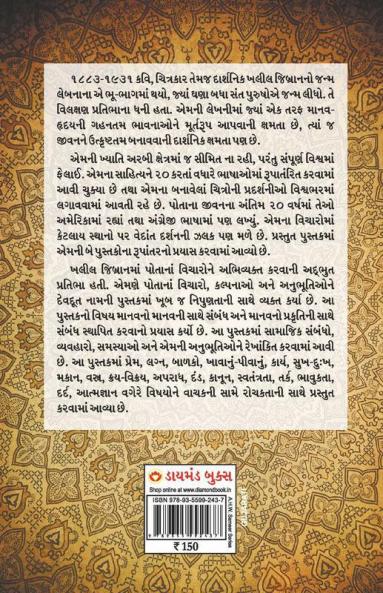 ૧૮૮૩-૧૯૩૧ કવિ, ચિત્રકાર તેમજ દાર્શનિક ખલીલ જિબ્રાનનો જન્મ
લેબનાના એ ભૂ-ભાગમાં થયો, જ્યાં ઘણા બધા સંત પુરુષોએ જન્મ લીધો. તે
વિલક્ષણ પ્રતિભાના ધની હતા. એમની લેખનીમાં જ્યાં એક તરફ માનવ-
હૃદયની ગહનતમ ભાવનાઓને મૂર્તરૂપ આપવાની ક્ષમતા છે, ત્યાં જ
જીવનને ઉત્કૃષ્ટતમ બનાવવાની દાર્શનિક ક્ષમતા પણ છે.
એમની ખ્યાતિ અરબી ક્ષેત્રમાં જ સીમિત ના રહી, પરંતુ સંપૂર્ણ વિશ્વમાં
ફેલાઈ. એમના સાહિત્યને ૨૦ કરતાં વધારે ભાષાઓમાં રૂપાતંરિત કરવામાં
આવી ચુક્યા છે તથા એમના બનાવેલાં ચિત્રોની પ્રદર્શનીઓ વિશ્વભરમાં
લગાવવામાં આવતી રહે છે. પોતાના જીવનના અંતિમ ૨૦ વર્ષમાં તેઓ
અમેરિકામાં રહ્યાં તથા અંગ્રેજી ભાષામાં પણ લખ્યું. એમના વિચારોમાં
કેટલાય સ્થાનો પર વેદાંત દર્શનની ઝલક પણ મળે છે. પ્રસ્તુત પુસ્તકમાં
એમની બે પુસ્તકોના રૂપાંતરનો પ્રયાસ કરવામાં આવ્યો છે.
ખલીલ જિબ્રાનમાં પોતાનાં વિચારોને અભિવ્યક્ત કરવાની અદ્ભુત
પ્રતિભા હતી. એમણે પોતાનાં વિચારો, કલ્પનાઓ અને અનુભૂતિઓને
દેવદૂત નામની પુસ્તકમાં ખૂબ જ નિપુણતાની સાથે વ્યક્ત કર્યા છે. આ
પુસ્તકનો વિષય માનવનો માનવની સાથે સંબંધ અને માનવનો પ્રકૃતિની સાથે
સંબંધ સ્થાપિત કરવાનો પ્રયાસ કર્યો છે. આ પુસ્તકમાં સામાજિક સંબંધો,
વ્યવહારો, સમસ્યાઓ અને એમની અનુભૂતિઓને રેખાંકિત કરવામાં આવી
છે. આ પુસ્તકમાં પ્રેમ, લગ્ન, બાળકો, ખાવાનું-પીવાનું, કાર્ય, સુખ-દુઃખ,
મકાન, વસ્ત્ર, ક્રય-વિક્રય, અપરાધ, દંડ, કાનૂન, સ્વતંત્રતા, તર્ક, ભાવુકતા,
દર્દ, આત્મજ્ઞાન વગેરે વિષયોને વાચકની સામે રોચકતાની સાથે પ્રસ્તુત
કરવામાં આવ્યા છે.
ડાયમંડ બુક્સ
Shop online at www.diamondbook.in
ISBN 978-93-5599-243-7
A.H.W. Sameer Series
₹ 150